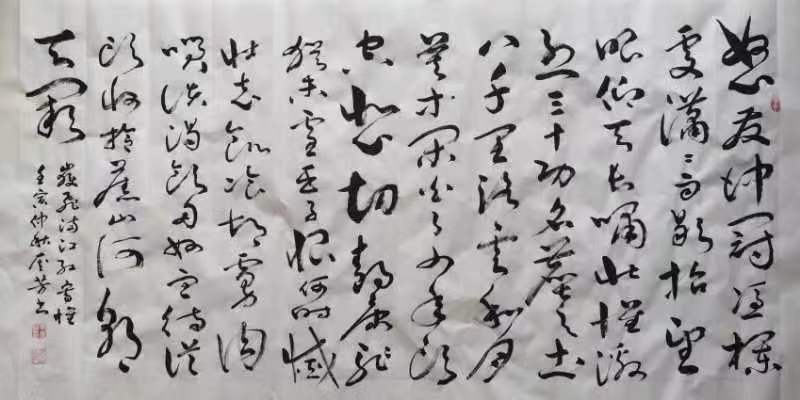 怒发冲冠凭欄
處潇潇雨歇抬望
眼仰天长啸壮懷激
烈三十功名塵与土
八千里路云和月
莫等闲白了少年头
空悲切靖康耻
犹未雪臣子恨何时滅
壮志饥餐胡虏肉
笑谈渴饮匈奴血待从
头收拾舊山河朝
天阙
嶽飛满江红寫懷
壬寅仲秋芳书